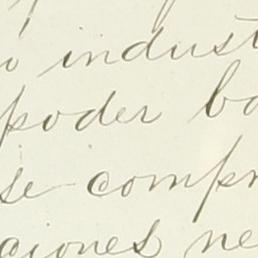 o indust
poder ba
se compr
aciones ne